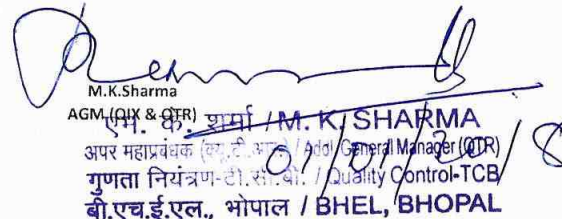 M.K.Sharma
AGM (QIX & QTR)
एम. के. शर्मा / M. K. SHARMA
अपर महाप्रबंधक (क्यू.टी.आर.) / Addl. General Manager (QTR)
गुणता नियंत्रण-टी.सी.बी. / Quality Control-TCB
बी.एच.ई.एल., भोपाल / BHEL, BHOPAL